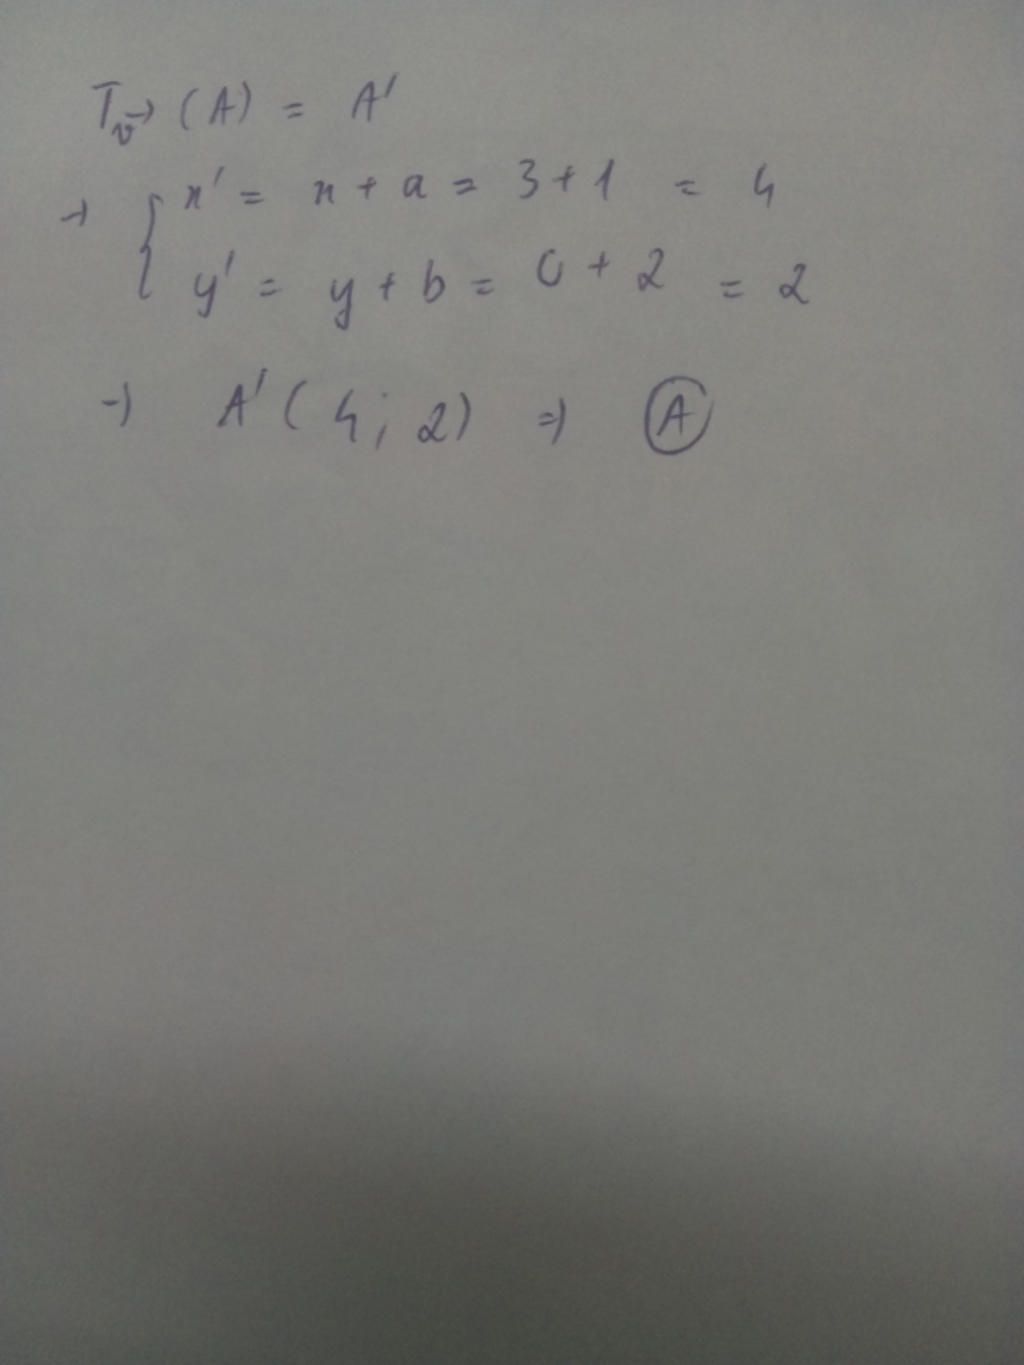 T_v→ (A) = A'
→ { x' = x + a = 3 + 1 = 4
y' = y + b = 0 + 2 = 2
→ A' ( 4 ; 2 ) ⇒ Ⓐ